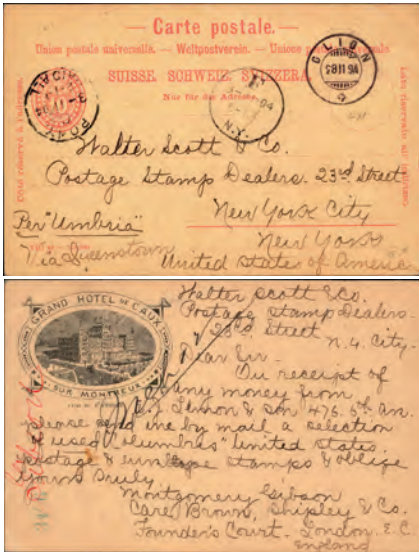 — Carte postale. —
Union postale universelle. — Weltpostverein. — Unione postale universale
SUISSE. SCHWEIZ. SVIZZERA.
Nur für die Adresse.
Côté réservé à l'adresse.
Lato riservato all'indirizzo.
GLION
N.Y.
Walter Scott & Co.
Postage Stamp Dealers. 23rd Street
New York City
New York
Per "Umbria"
Via Queenstown
United States of America
GRAND HOTEL DE CAUX
SUR MONTREUX
Walter Scott & Co.
Postage Stamp Dealers.
23rd Street
N.Y. City.
Dear Sir -
On receipt of
any money from
& Son 476. 5th Av.
please send me by mail a selection
of used "Columbus" United States
postage & envelope stamps & oblige
Yours truly
Montgomery Gibson
Care Brown, Shipley & Co.
Founder's Court. London. E.C.
England